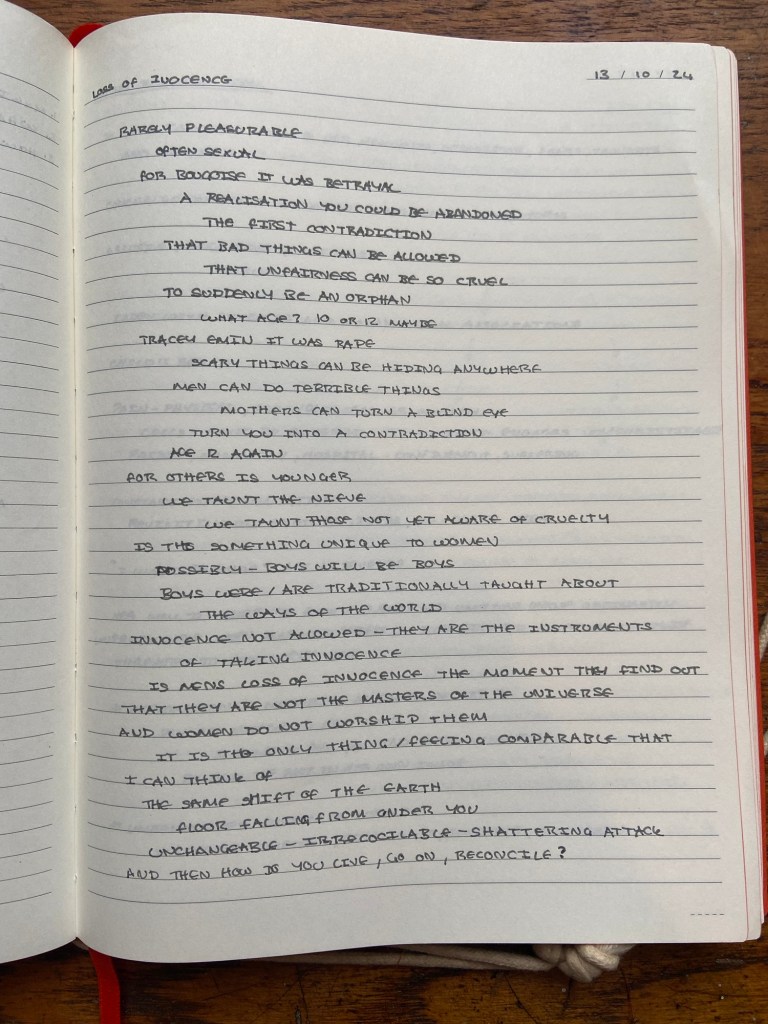 LOSS OF INOCENCE
13 / 10 / 24
BARELY PLEASURABLE
OFTEN SEXUAL
FOR BOUGOISE IT WAS BETRAYAL
A REALISATION YOU COULD BE ABANDONED
THE FIRST CONTRADICTION
THAT BAD THINGS CAN BE ALLOWED
THAT UNFAIRNESS CAN BE SO CRUEL
TO SUDDENLY BE AN ORPHAN
WHAT AGE? 10 OR 12 MAYBE
TRACEY EMIN IT WAS RAPE
SCARY THINGS CAN BE HIDING ANYWHERE
MEN CAN DO TERRIBLE THINGS
MOTHERS CAN TURN A BLIND EYE
TURN YOU INTO A CONTRADICTION
AGE 12 AGAIN
FOR OTHERS IS YOUNGER
WE TAUNT THE NIEVE
WE TAUNT THOSE NOT YET AWARE OF CRUELTY
IS THIS SOMETHING UNIQUE TO WOMEN
POSSIBLY - BOYS WILL BE BOYS
BOYS WERE / ARE TRADITIONALLY TAUGHT ABOUT
THE WAYS OF THE WORLD
INNOCENCE NOT ALLOWED - THEY ARE THE INSTRUMENTS
OF TAKING INNOCENCE
IS MENS LOSS OF INNOCENCE THE MOMENT THEY FIND OUT
THAT THEY ARE NOT THE MASTERS OF THE UNIVERSE
AND WOMEN DO NOT WORSHIP THEM
IT IS THE ONLY THING / FEELING COMPARABLE THAT
I CAN THINK OF
THE SAME SHIFT OF THE EARTH
FLOOR FALLING FROM UNDER YOU
UNCHANGEABLE - IRRECOCILABLE - SHATTERING ATTACK
AND THEN HOW DO YOU LIVE, GO ON, RECONCILE?